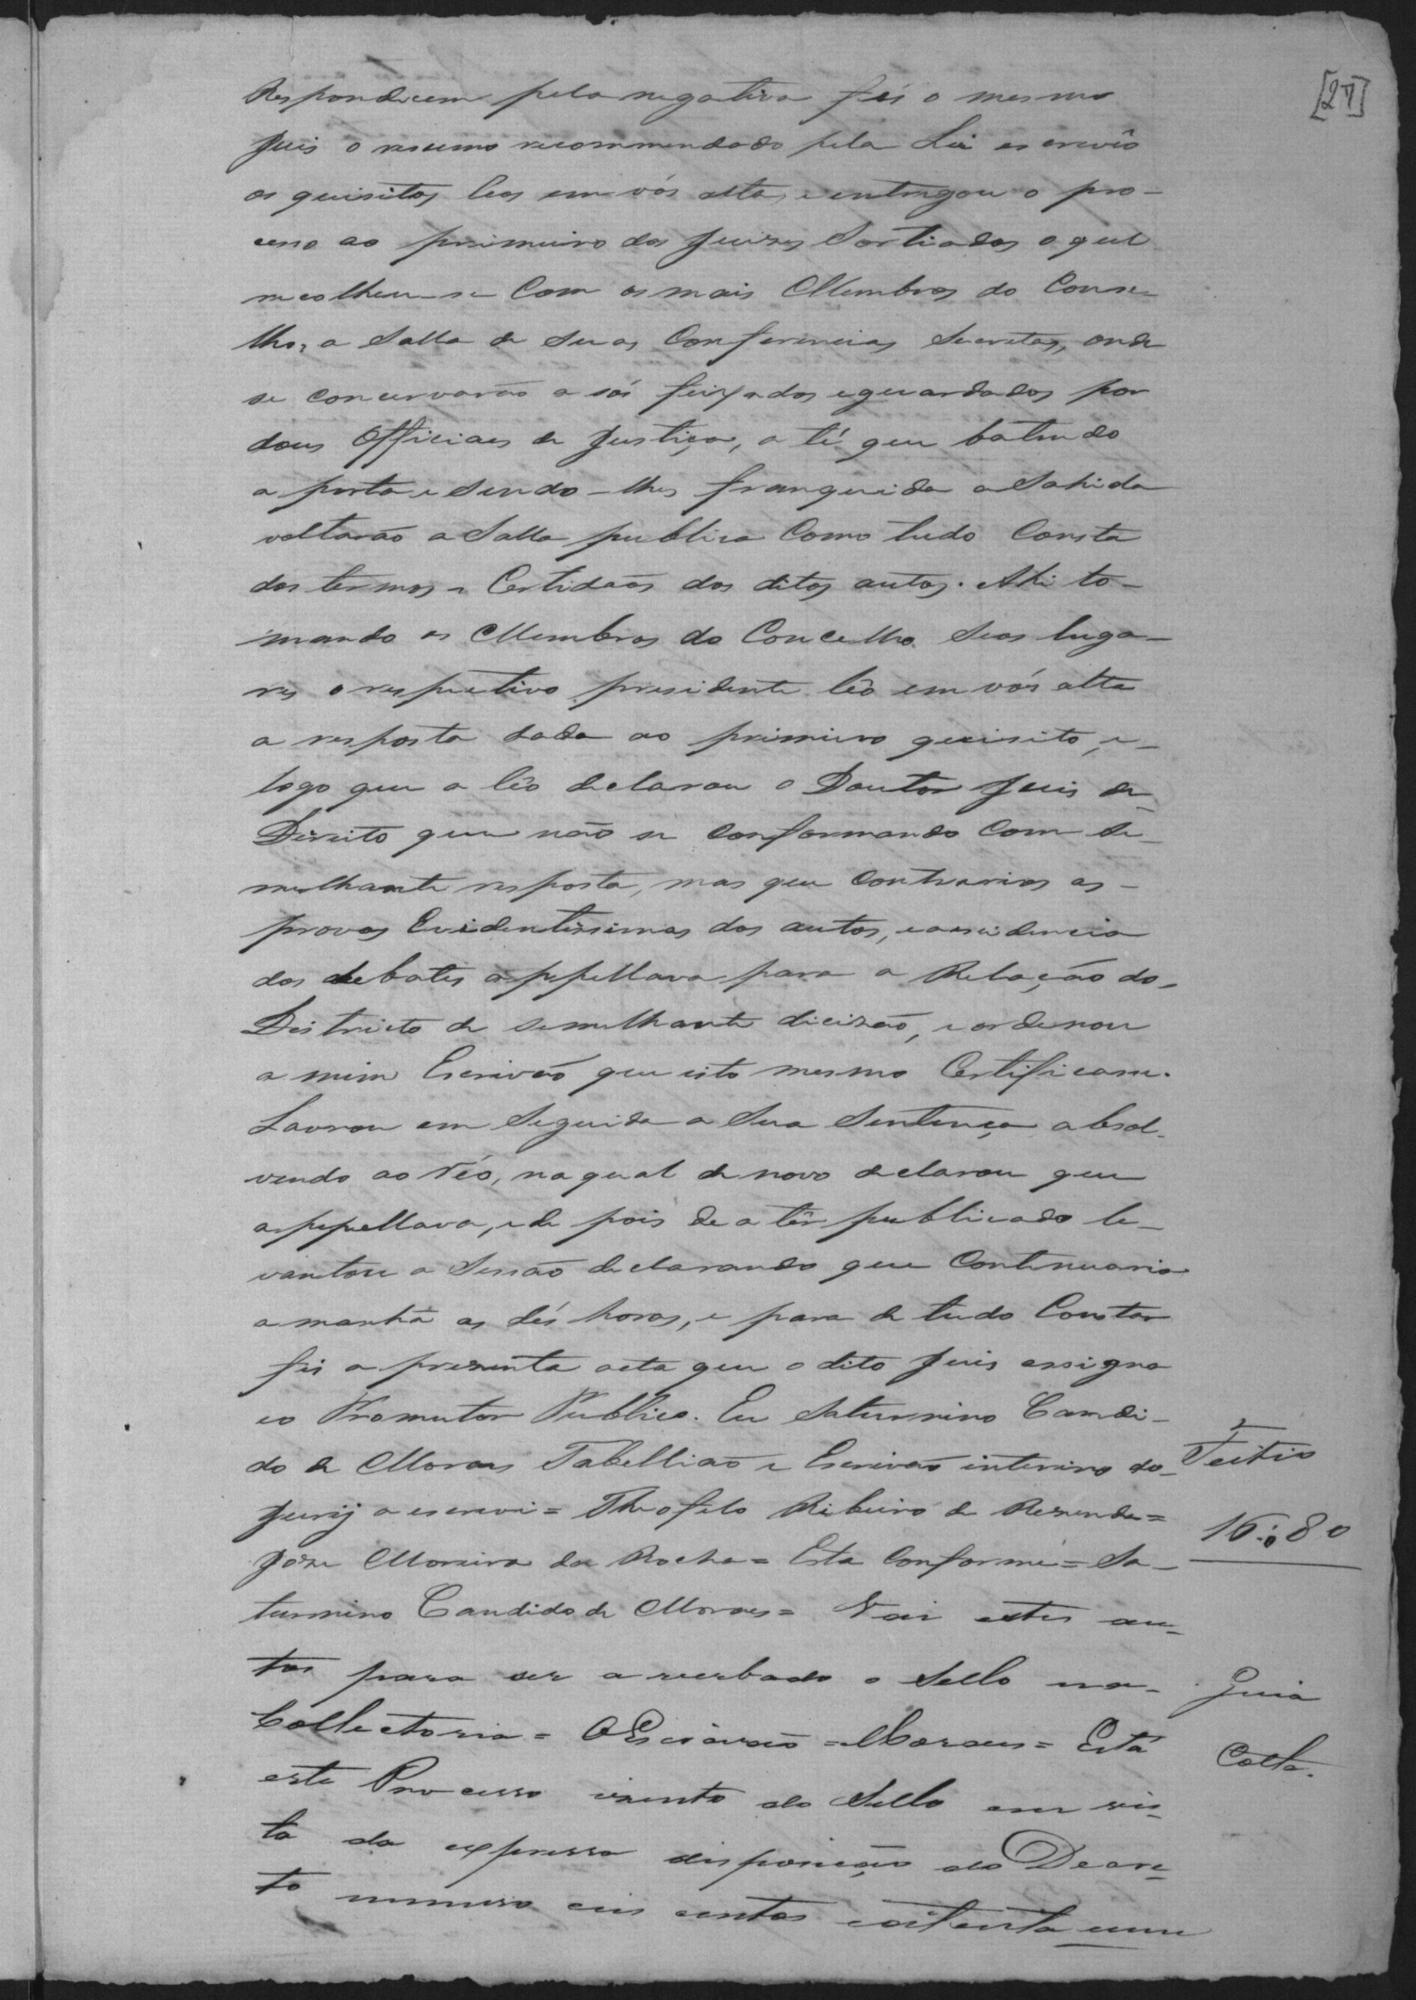 [27]
Responderem pela negativa fés o mesmo
Juis o resumo recommendado pela Lei escrevêo
os quisitos, leos em vós alta, e entregou o pro-
cesso ao primeiro dos Juizes Sortiados o qual
recolheu-se Com os mais Membros do Conse-
lho, a Salla de Suas Conferencias Secretas, onde
se concervarão a sós feixados e guardados por
dous Officiaes de Justiça, a té que batendo
a porta e Sendo-lhes franqueida a Sahida
voltarão a Salla publica Como tudo Consta
dos termos e Certidoẽs dos ditos autos. Ahi to-
mando os Membros do Concelho Seos luga-
res o respectivo presidente lêo em vós alta
a resposta dada ao primeiro quisito, e
logo que a lêo declarou o Doutor Juis de
Direito que não se Conformando Com se-
melhante resposta, mas que Contrarios as
provas Evidentissimas dos autos, e a evidencia
dos debates appellava para a Relação do
Districto de semelhante dicizão, e ordenou
a mim Escrivão que isto mesmo Certificasse.
Lavrou em Seguida a Sua Sentença absol-
vendo ao réo, na qual de novo declarou que
appellava, e de pois de a têr publicado le-
vantou a Sessão declarando que Continuaria
a manhã as dés horas, e para de tudo Constar
fis a presente acta que o dito Juis assigna
eo Promutor Publico. Eu Saturnino Candi-
do de Moraes Tabellião e Escrivão interino do
Jurij a escrevi = Theofilo Ribeiro de Rezende =
José Moreira da Rocha = Está Conforme = Sa-
turnino Candido de Moraes = Vai estes au-
tos para ser averbado o Sello na
Collectoria = O Escrivão = Moraes = Está
este Processo izento do Sello em vis-
ta da expressa disposição do Decre-
to numero seis centos e oitenta e um
Feitio
16:80
Guia
Colla.